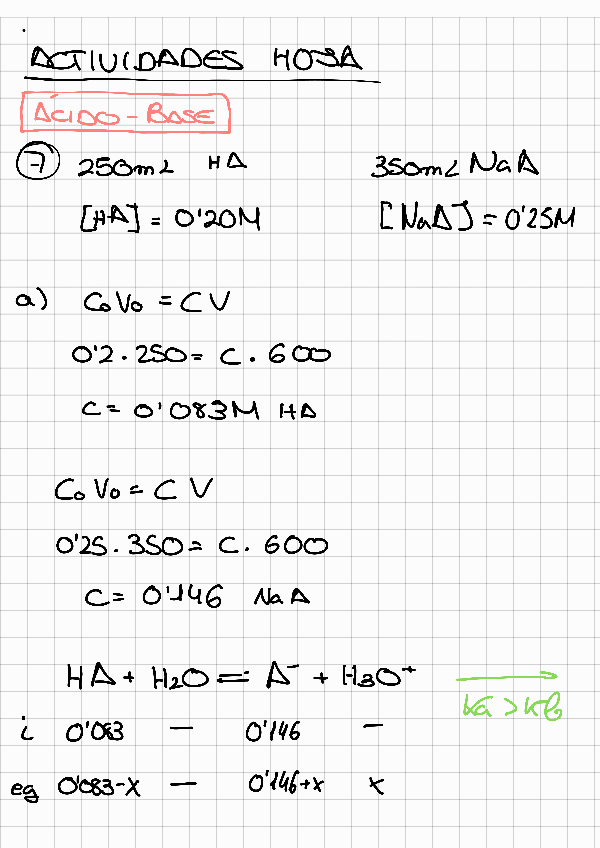 ACTIVIDADES HOJA
ÁCIDO - BASE
7 250mL HA 350mL NaA
[HA] = 0'20M [NaA] = 0'25M
a) C₀V₀ = CV
0'2 · 250 = C · 600
C = 0'083M HA
C₀V₀ = CV
0'25 · 350 = C · 600
C = 0'146 NaA
HA + H₂O = A⁻ + H₃O⁺ →
Ka > Kb
i 0'083 — 0'146 —
eq 0'083-x — 0'146+x x